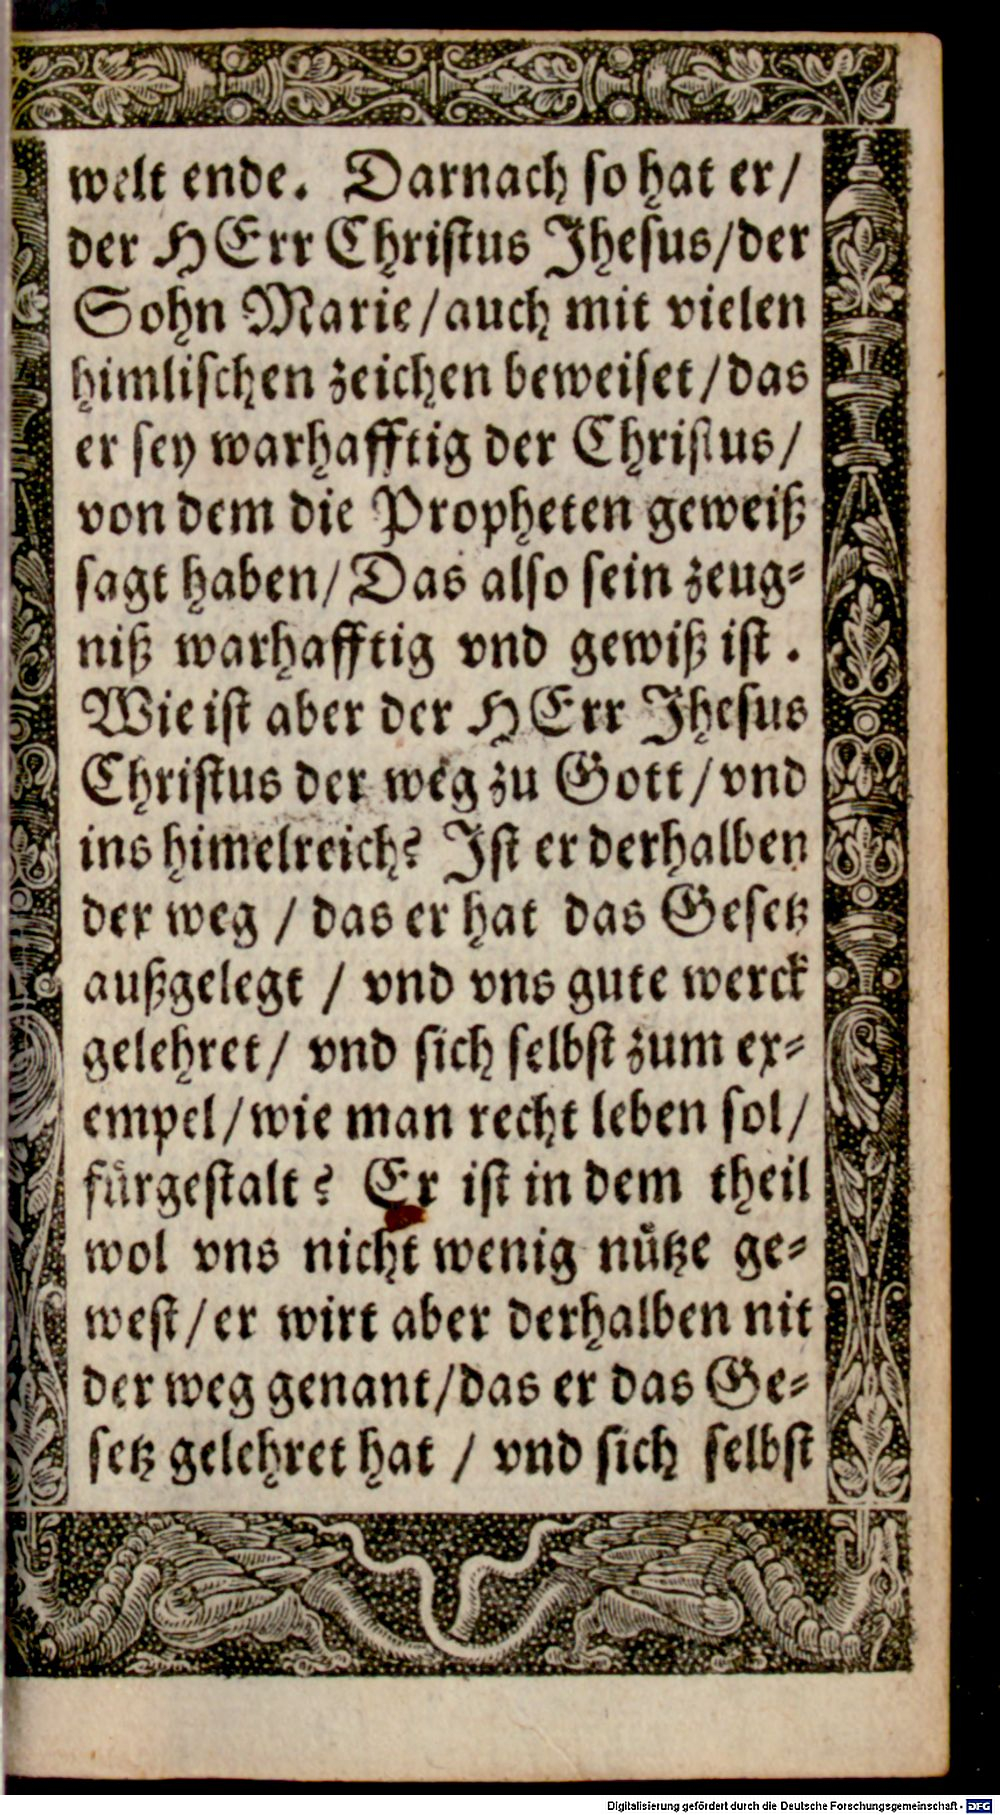 welt ende. Darnach so hat er/
der HErr Christus Jhesus/der
Sohn Marie/auch mit vielen
himlischen zeichen beweiset/das
er sey warhafftig der Christus/
von dem die Propheten geweiß
sagt haben/Das also sein zeug=
niß warhafftig vnd gewiß ist.
Wie ist aber der HErr Jhesus
Christus der weg zu Gott/vnd
ins himelreich? Ist er derhalben
der weg / das er hat das Gesetz
außgelegt / vnd vns gute werck
gelehret/ vnd sich selbst zum ex=
empel/wie man recht leben sol/
fürgestalt? Er ist in dem theil
wol vns nicht wenig nütze ge=
west/er wirt aber derhalben nit
der weg genant/das er das Ge=
setz gelehret hat / vnd sich selbst
Digitalisierung gefördert durch die Deutsche Forschungsgemeinschaft - DFG